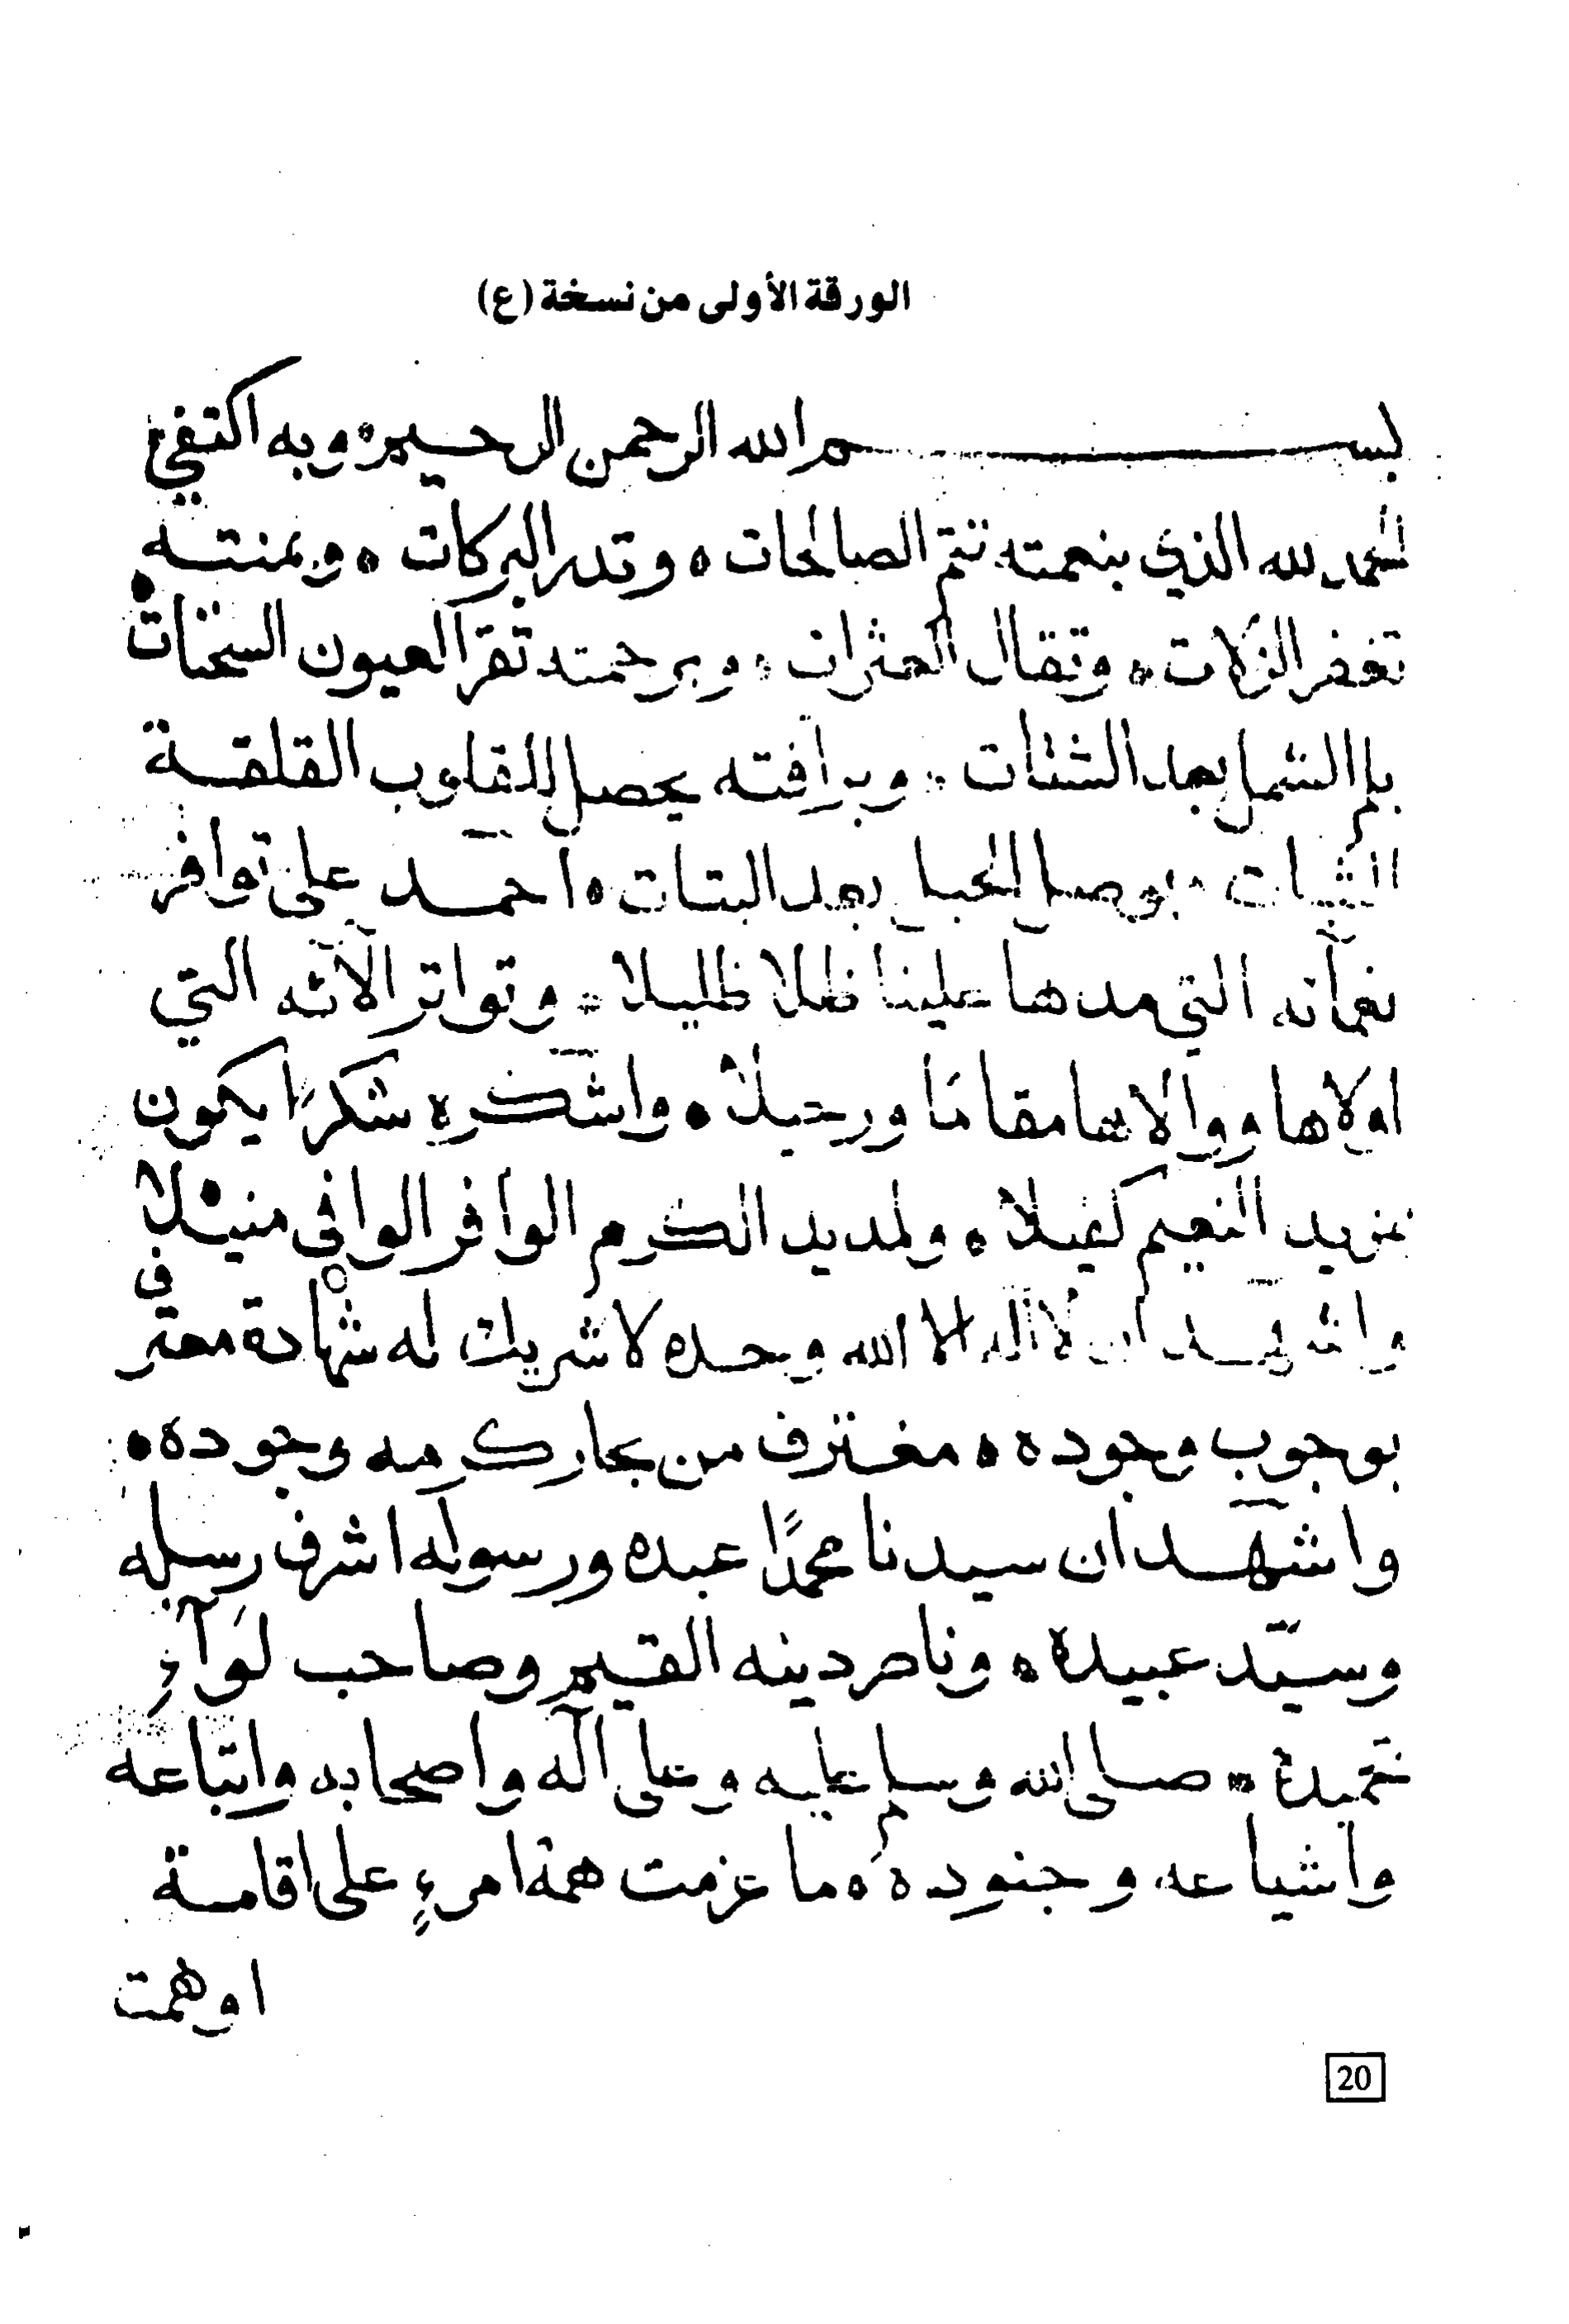 الورقة الأولى من نسخة (ع)
بسم الله الرحمن الرحيم ٥ وبه اكتفي
الحمد لله الذي بنعمته تتم الصالحات ٥ وتدر البركات ٥ وبمنته
تغفر الزلات ٥ وتقال العثرات ٥ وبرحمته تقر العيون السخنات
بلم الشمل بعد الشتات ٥ وبرأفته يحصل للقلوب القلقة
الثبات بوصل الحبل بعد البتات ٥ احمد على توافر
نعمآئه التي مدها علينا ظلا ظليلا ٥ وتواتر الآئه التي
اولاها ووالاها مقامًا ورحيلا ٥ واشكره شكرًا يكون
بمزيد النعيم كفيلا ٥ ولمديد الكرم الوافر الوافي منيلا
واشهد ان لا اله الا الله وحده لا شريك له شهادة معترف
بوجوب وجوده ٥ مغترف من بحار كرمه وجوده ٥
واشهد ان سيدنا محمدًا عبده ورسوله اشرف رسله
وسيّد عبيده ٥ وناصر دينه القيم وصاحب لوآءِ
تحميده ٥ صلى الله وسلم عليه وعلى آله واصحابه واتباعه
واشياعه وجنوده ٥ ما عزمت همة امرءٍ على اقامة
او همت
20